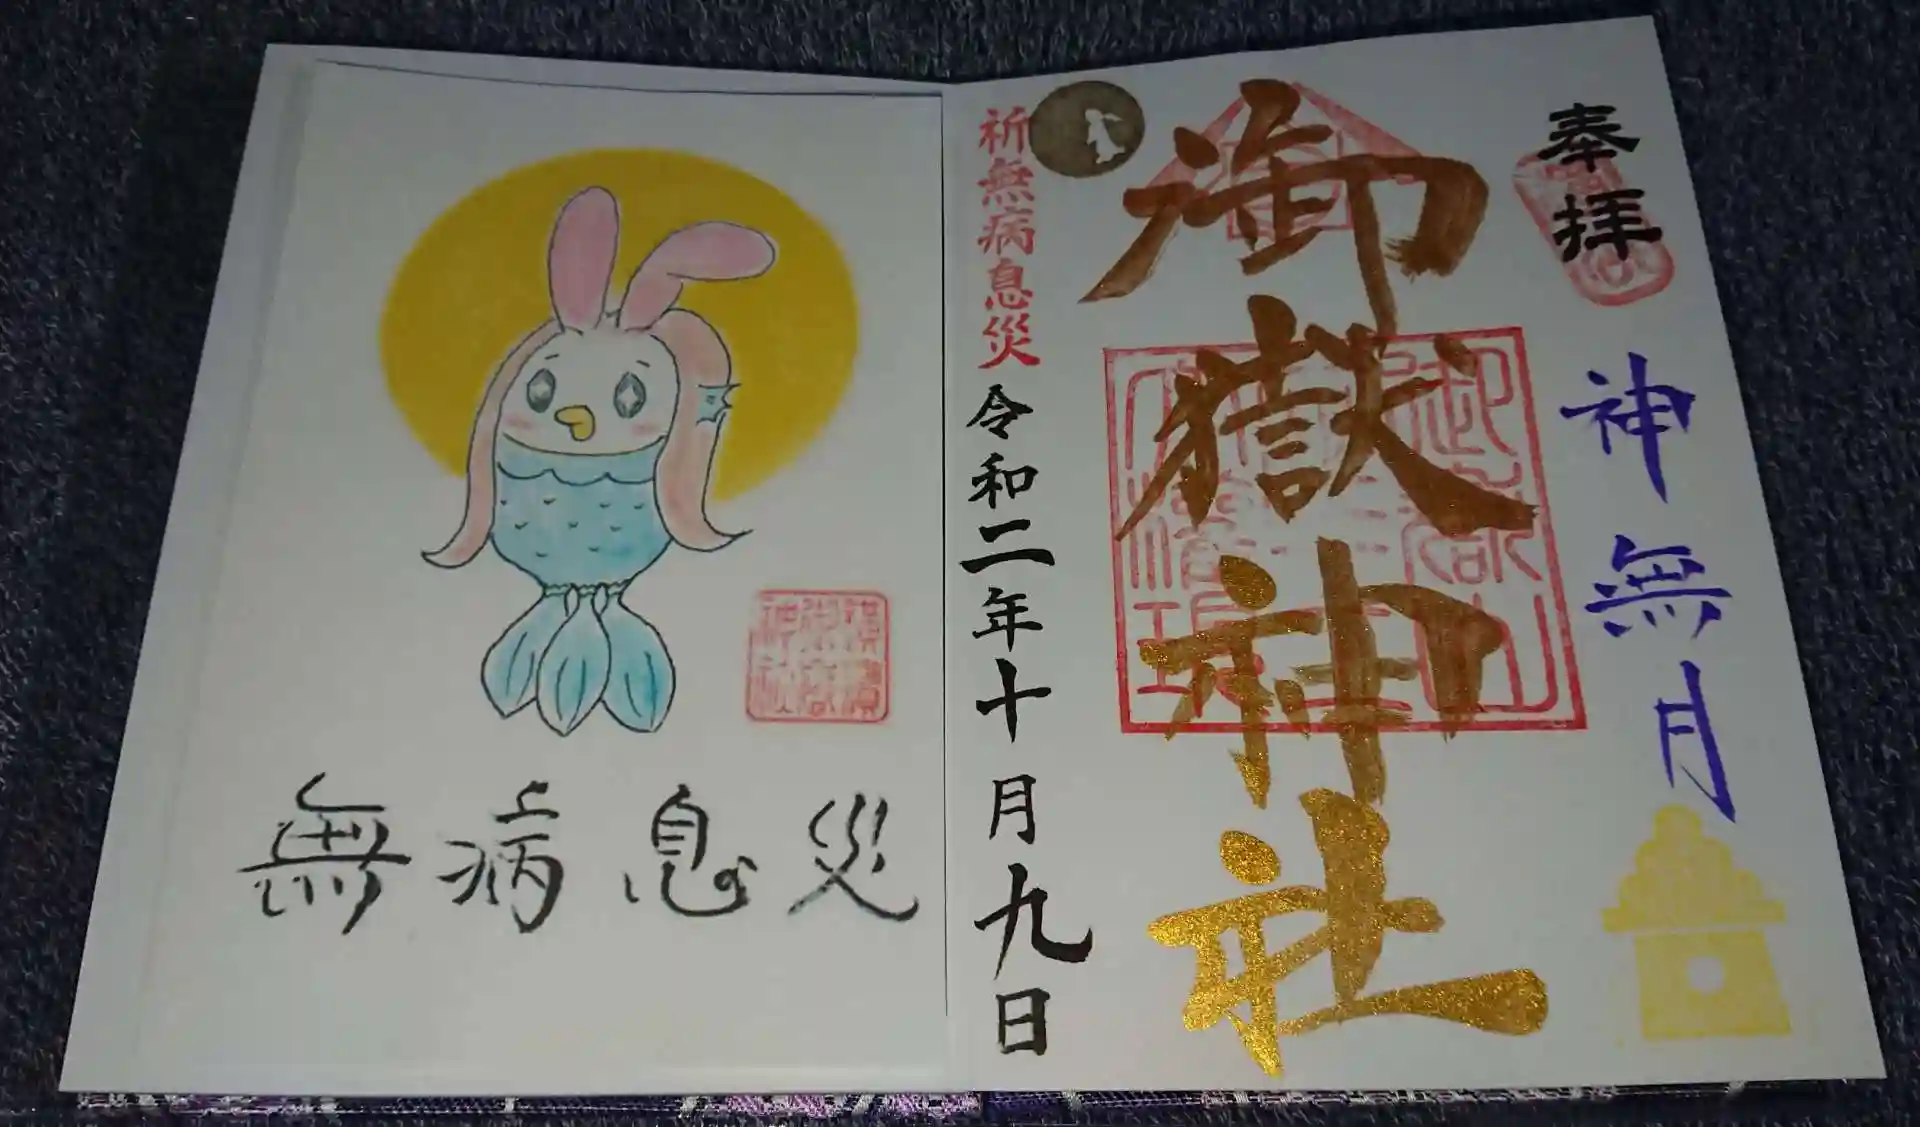 奉拝
神無月
御嶽神社
祈無病息災
令和二年十月九日
無病息災